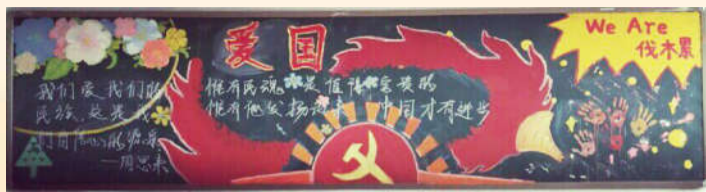 爱国
We Are
伐木累
我们爱我们的
民族,这是我
们自信心的源泉
——周恩来
惟有民魂是值得宝贵的
惟有他发扬起来 中国才有进步